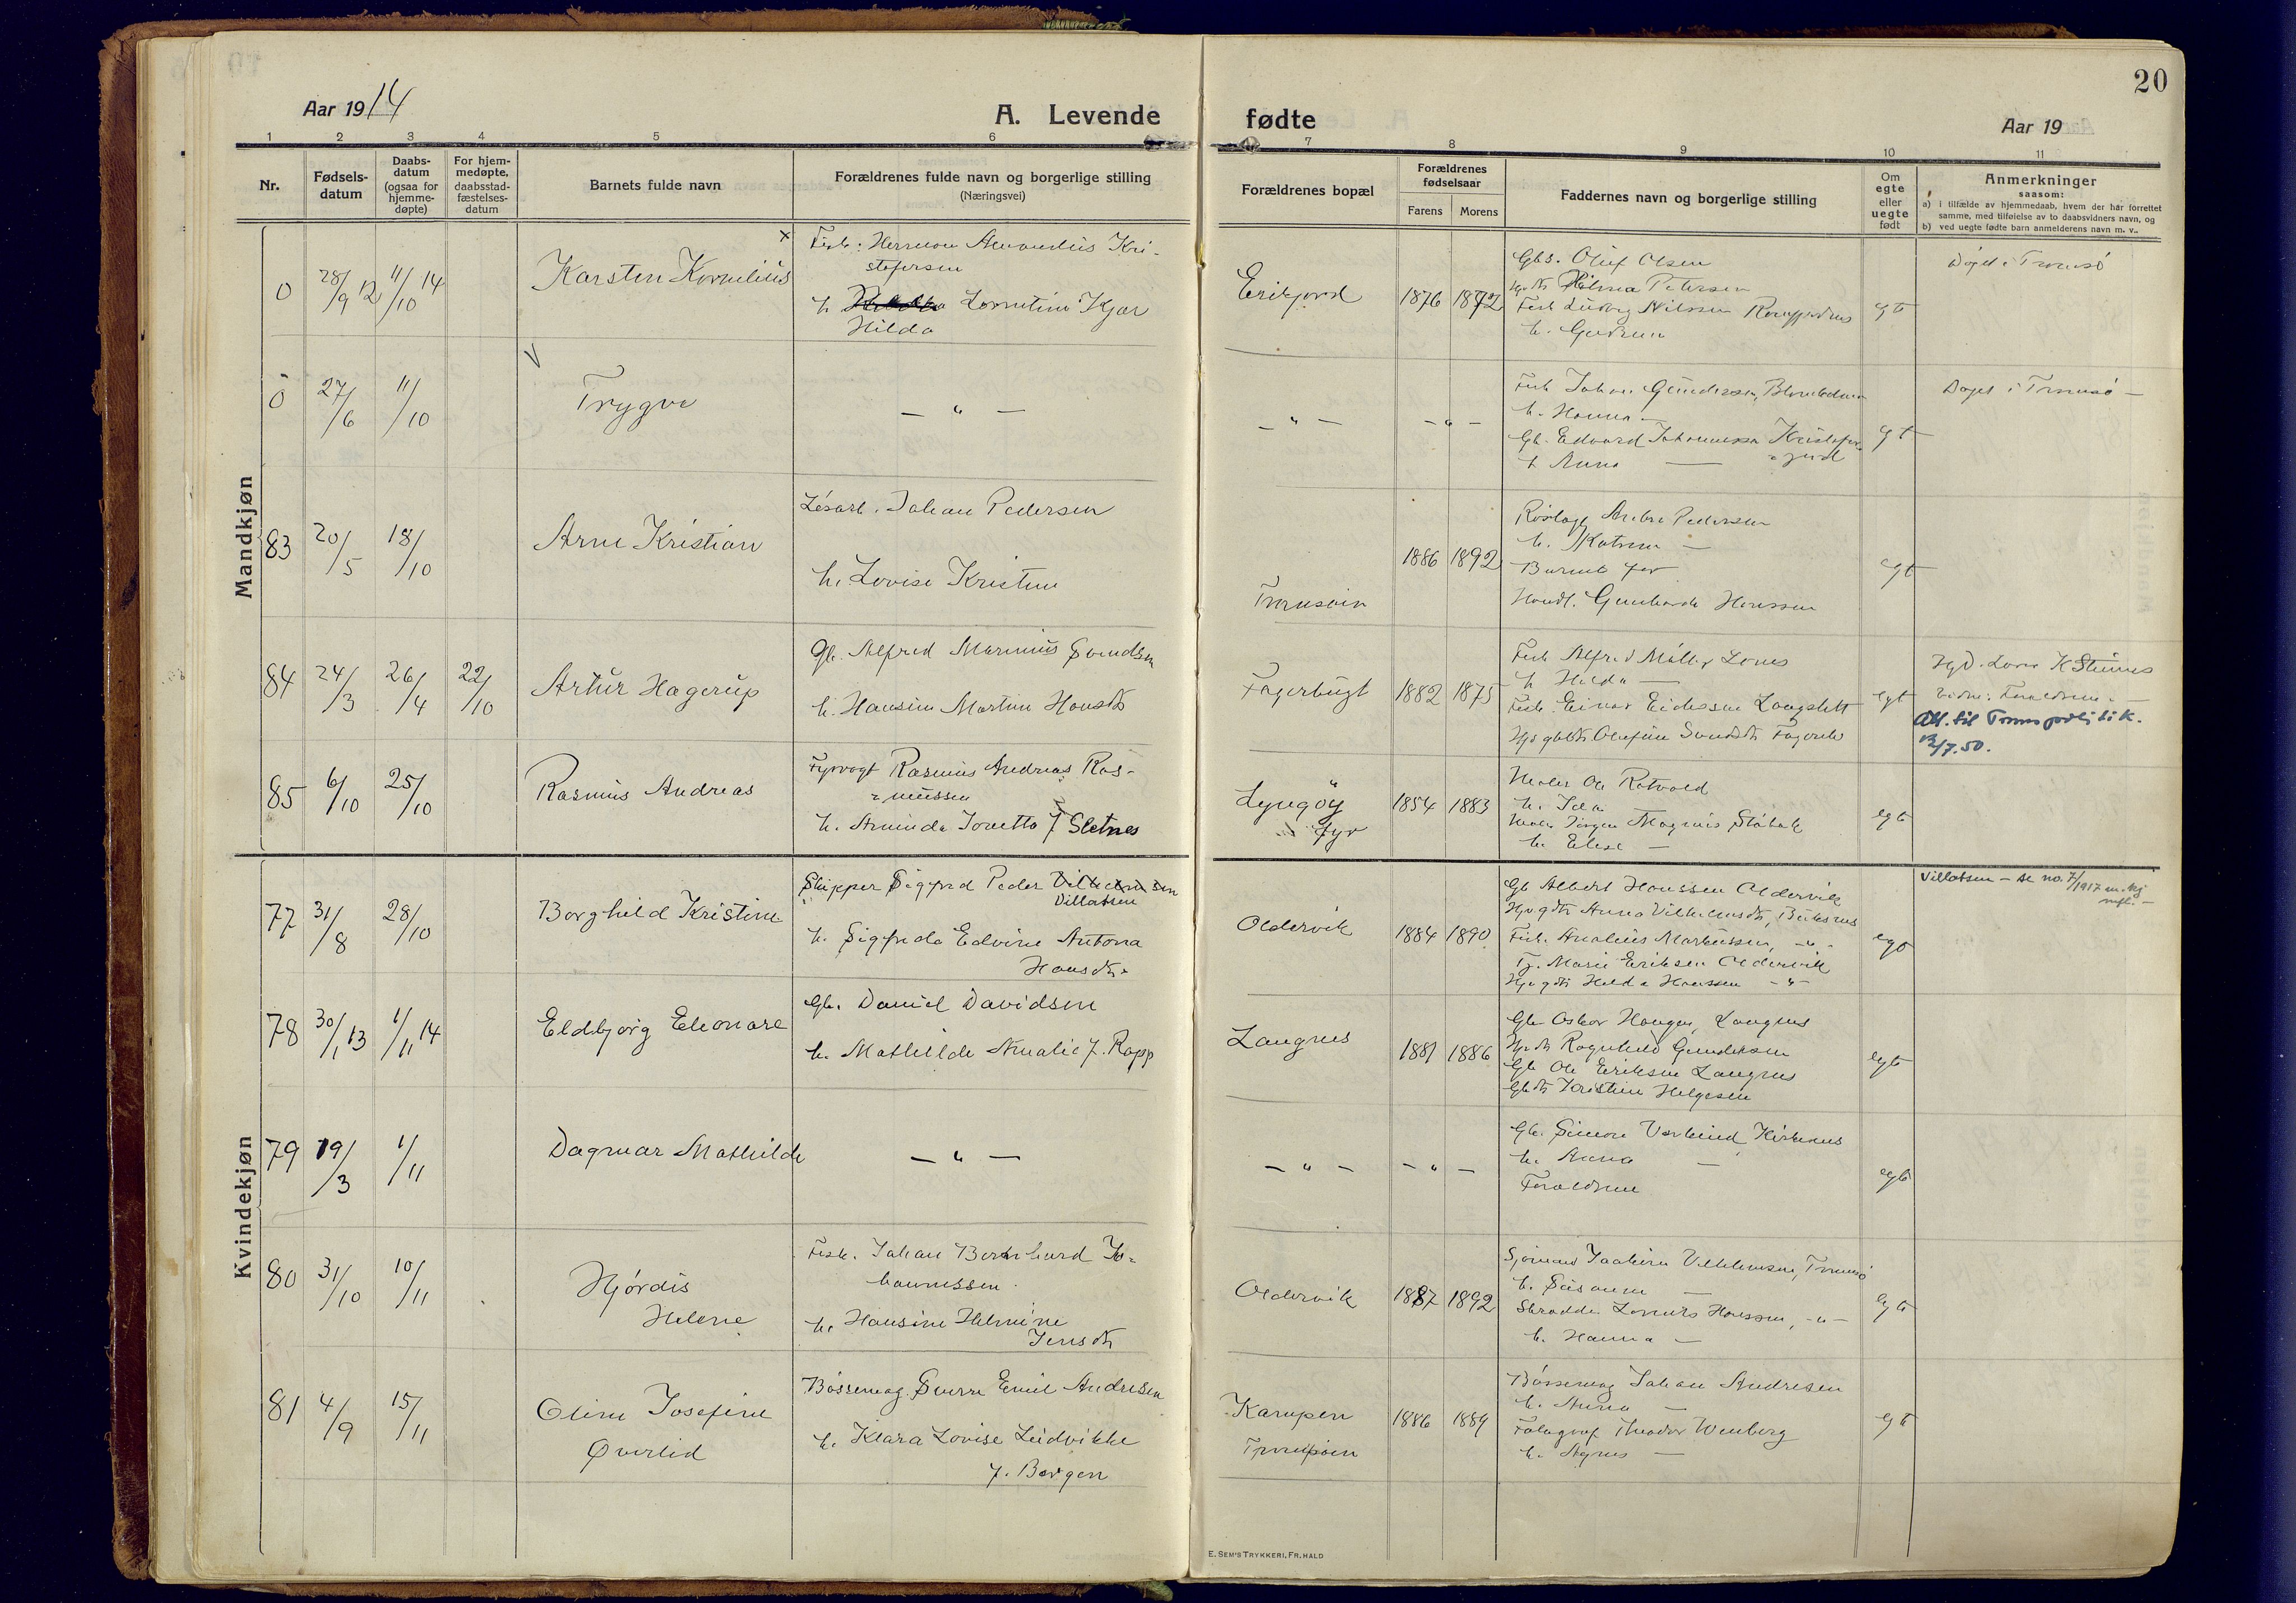 20
Aar 1914
A. Levende
fødte
Aar 19
1 2 3 4 5 6 7 8 9 10 11
Nr.
Fødsels-
datum
Daabs-
datum
(ogsaa for
hjemme-
døpte)
For hjem-
medøpte,
daabsstad-
fæstelses-
datum
Barnets fulde navn
Forældrenes fulde navn og borgerlige stilling
(Næringsvei)
Forældrenes bopæl
Forældrenes
fødselsaar
Farens Morens
Faddernes navn og borgerlige stilling
Om
egte
eller
uegte
født
Anmerkninger
saasom:
a) i tilfælde av hjemmedaab, hvem der har forrettet
samme, med tilføielse av to daabsvidners navn, og
b) ved uegte fødte barn anmelderens navn m. v..
Mandkjøn
0 28/9 12 11/10 14 Karsten Kornelius
×
Fisk. Herman Kri-
stofersen
h. Hilda
Eriksjord 1876 1872
Gbs. Oluf Olsen
Petersen
Fisk Ludvig Nilssen
h. Gudrun
egt
Døpt i Tromsø
0 27/6 11/10
V
Trygve
— " —
— " — — " —
Fisk Johan Gundersen,
h. Hanna —
Gb. Edvard Johannessen
h. Anna —
egt
Døpt i Tromsø —
83 20/5 18/10 Arne Kristian
Løsarb. Johan Pedersen
h. Lovise Kristine
Tromsøen
1886 1892
Pedersen
h. —
Barnets far
Handl. Hanssen
egt
84 24/3 26/4 22/10 Artur Hagerup
Gb. Alfred Marinius Svendsen
h. Hansine Martine Hansdtr
Fagerbugt 1882 1875
Fisk Alfred
h Hilda —
Fisk. Einar Eidissen Langslett
Olufine
egt
Att. til Troms politik.
12/7.50.
85 6/10 25/10 Rasmus Andreas
Fyrvogt Rasmus Andreas Ras-
mussen
h. Arminda Jonetta f Sletnes
Lyngøy
fyr
1854 1883
Maler Ole Rotvold
h. Ida
Jørgen Magnus
h. Elise —
egt
Kvindekjøn
77 31/8 28/10 Borghild Kristine
Skipper Sigfred Peder Vilhelmsen
Villatsen
h. Sigfrida Edvine Antona
Hansdtr
Oldervik 1884 1890
Gb Albert Hanssen Oldervik
Anna Vilhelmsdtr,
Fisk. Analius Markussen, - " -
Marie Eriksen Oldervik
Hilda Hanssen - " -
egt
Villatsen — se no. 7/1917 m.kj
78 30/1 13 1/11 14 Eldbjørg Eleonare
Gb. Daniel Davidsen
h. Mathilde Amalie f. Rapp
Langnes 1881 1886
Gb Oskar Haugen, Langnes
Ragnhild Gundersen
Gb Ole Eriksen Langnes
Gbdtr Kristine Helgesen
egt
79 19/3 1/11 Dagmar Mathilde
— " —
— " — — " —
Gb. Simon
h. Anna —
Forældrene
egt
80 31/10 10/11 Hjørdis
Helene
Fisk. Johan Bernhard Jo-
hannessen
h. Hansine Helmine
Jensdtr
Oldervik 1887 1892
Sjømand Joakim Vilhelmsen, Tromsø
h. Susanne —
Skrædder Hanssen, - " -
h. Hanna —
egt
81 4/9 15/11 Oline Josefine
Øverlid
Bøssemag. Sverre Emil Andresen
h. Klara Lovise Ludvikke
f. Borgen
Karupen
Tromsøen
1886 1889
Bøssemag Johan Andresen
h. Anna —
Fotograf Theodor Wenberg
h. Agnes —
egt
E. SEM'S TRYKKERI, FR.HALD